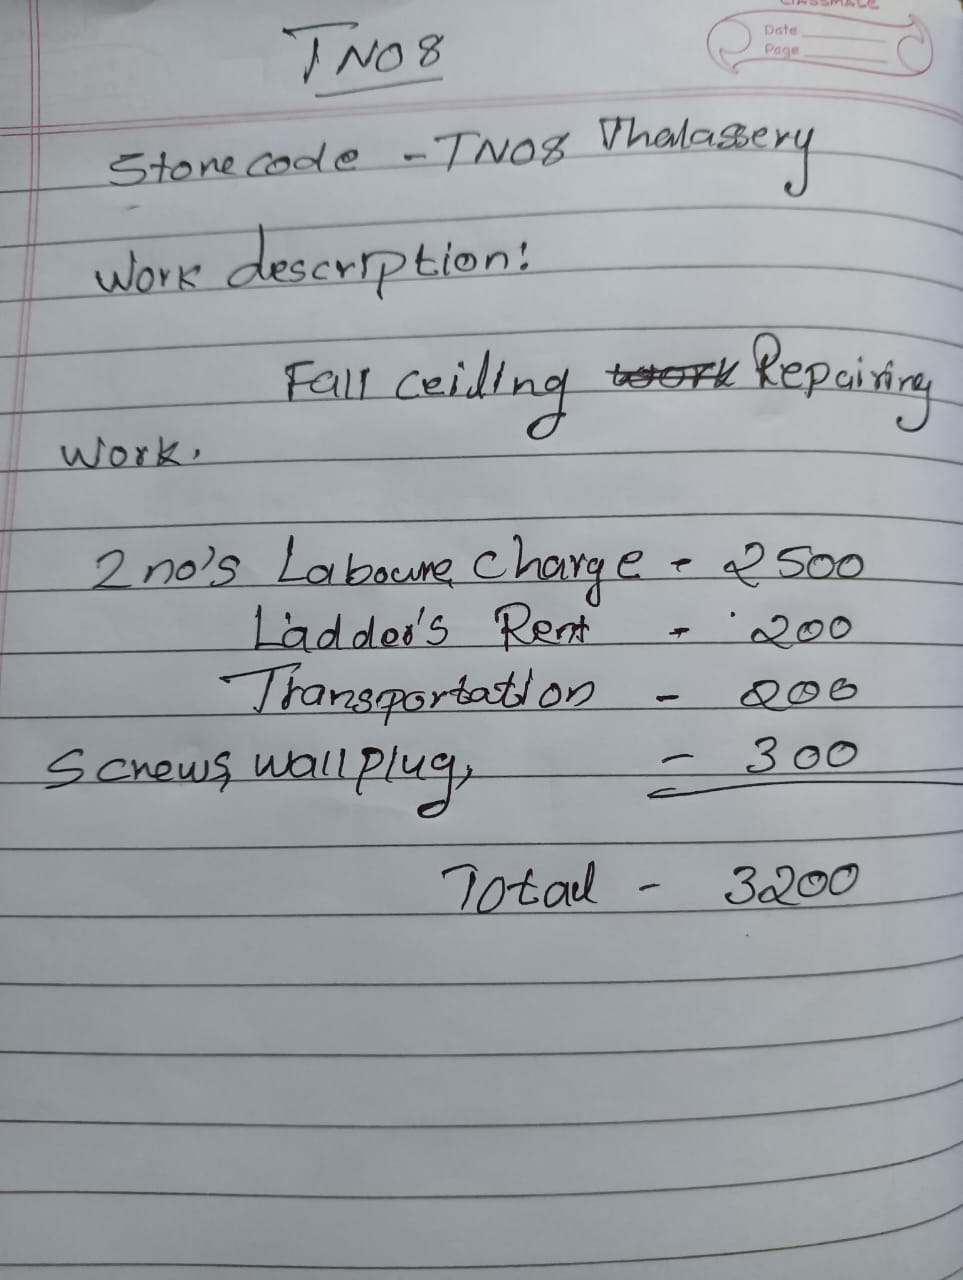 CLASSMATE
Date
Page
TNO8
Store code - TNO8 Thalassery
Work description:
Fall ceiling work Repairing
work.
2 no's Laboure charge - 2500
Ladder's Rent - 200
Transportation - 200
Screws, wall plug, - 300
Total - 3200